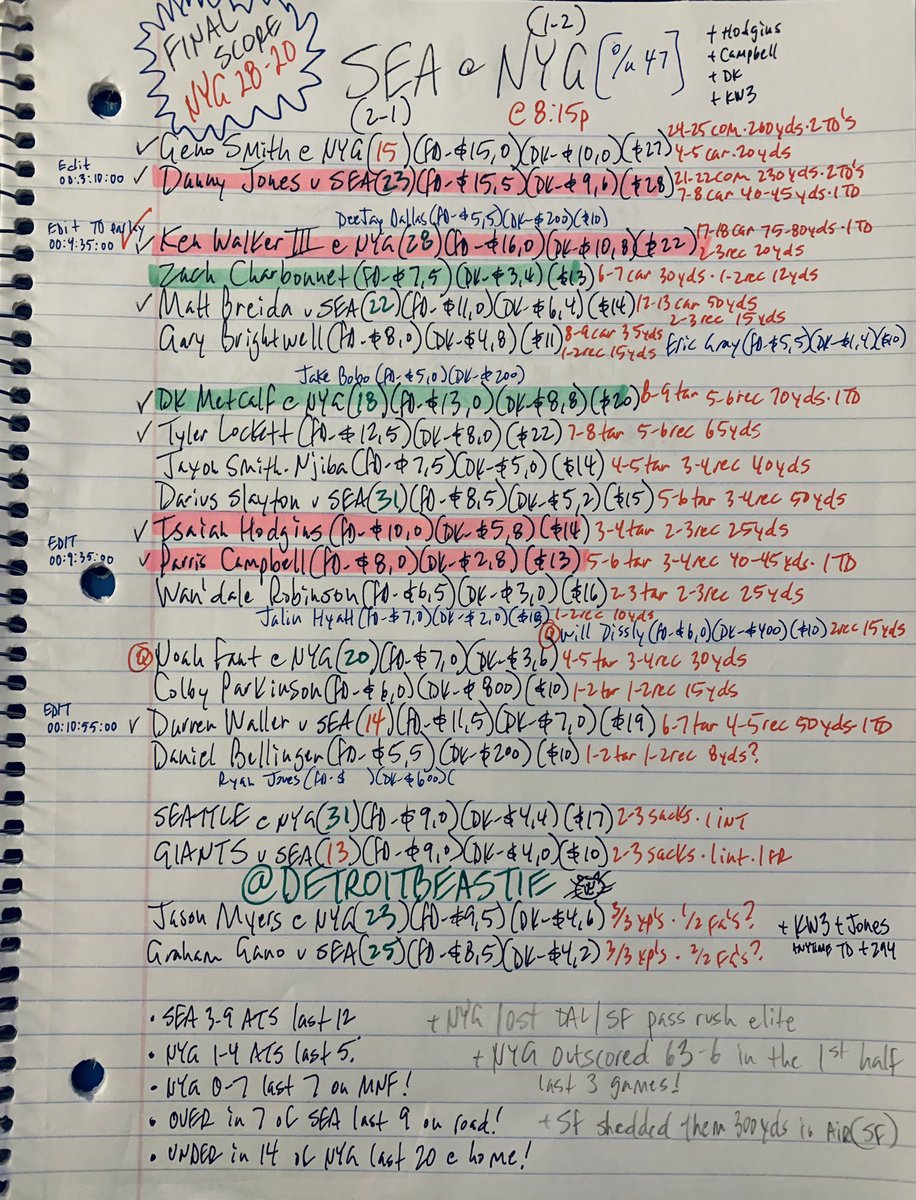 FINAL
SCORE
NYG 28-20
SEA @ NYG [O/U 47]
(2-1)
(1-2)
@ 8:15p
+ Hodgins
+ Campbell
+ DK
+ KW3
✓ Geno Smith @ NYG (15) (FD-$15,0) (DK-$10,0) ($27) 24-25 com. 260yds. 2 TD's
4-5 car. 20yds
Edit
00:3:10:00
✓ Danny Jones v SEA (23) (FD-$15,5) (DK-$9,6) ($28) 21-22 com 230yds. 2 TD's
7-8 car 40-45yds. 1 TD
DeeJay Dallas (FD-$5,5) (DK-$200) ($10)
Edit TD earley
00:9:35:00
✓ Ken Walker III @ NYG (28) (FD-$16,0) (DK-$10,8) ($22) 17-18 car 75-80yds. 1 TD
2-3rec 20yds
Zach Charbonnet (FD-$7,5) (DK-$3,4) ($13) 6-7 car 30yds. 1-2rec 12yds
✓ Matt Breida v SEA (22) (FD-$11,0) (DK-$6,4) ($14) 12-13 car 50yds
2-3 rec 15yds
Gary Brightwell (FD-$8,0) (DK-$4,8) ($11) 8-9 car 35yds
1-2rec 15yds
Eric Gray (FD-$5,5) (DK-$1,4) ($10)
Jake Bobo (FD-$5,0) (DK-$200)
✓ DK Metcalf @ NYG (18) (FD-$13,0) (DK-$8,8) ($20) 8-9 tar 5-6rec 70yds. 1 TD
✓ Tyler Lockett (FD-$12,5) (DK-$8,0) ($22) 7-8 tar 5-6rec 65yds
Jaxon Smith-Njiba (FD-$7,5) (DK-$5,0) ($14) 4-5 tar 3-4rec 40yds
Darius Slayton v SEA (31) (FD-$8,5) (DK-$5,2) ($15) 5-6 tar 3-4rec 50yds
✓ Isaiah Hodgins (FD-$10,0) (DK-$5,8) ($14) 3-4 tar 2-3rec 25yds
EDIT
00:9:35:00
✓ Parris Campbell (FD-$8,0) (DK-$2,8) ($13) 5-6 tar 3-4rec 40-45yds. 1 TD
Wan'dale Robinson (FD-$6,5) (DK-$3,0) ($16) 2-3 tar 2-3rec 25yds
Jalin Hyatt (FD-$7,0) (DK-$2,0) ($13) 1-2rec 10yds
Q Will Dissly (FD-$6,0) (DK-$400) ($10) 2rec 15yds
Q Noah Fant @ NYG (20) (FD-$7,0) (DK-$3,6) 4-5 tar 3-4rec 30yds
Colby Parkinson (FD-$6,0) (DK-$800) ($10) 1-2 tar 1-2rec 15yds
EDIT
00:10:55:00
✓ Darren Waller v SEA (14) (FD-$11,5) (DK-$7,0) ($19) 6-7 tar 4-5 rec 50yds. 1 TD
Daniel Bellinger (FD-$5,5) (DK-$200) ($10) 1-2 tar 1-2rec 8yds?
Ryan Jones (FD-$ ) (DK-$600) (
SEATTLE @ NYG (31) (FD-$9,0) (DK-$4,4) ($17) 2-3 sacks. 1 INT
GIANTS v SEA (13) (FD-$9,0) (DK-$4,0) ($10) 2-3 sacks. 1 int. 1 FR
@DETROITBEASTIE
Jason Myers @ NYG (23) (FD-$9,5) (DK-$4,6) 3/3 xp's. 1/2 FG's?
Graham Gano v SEA (25) (FD-$8,5) (DK-$4,2) 3/3 xp's. 2/2 FG's?
+ KW3 + Jones
ANYTIME TD +294
• SEA 3-9 ATS last 12
• NYG 1-4 ATS last 5.
• NYG 0-7 last 7 on MNF!
• OVER in 7 of SEA last 9 on road!
• UNDER in 14 of NYG last 20 @ home!
+ NYG lost DAL/SF pass rush elite
+ NYG outscored 63-6 in the 1st half
last 3 games!
+ SF shedded them 300yds in Air (SF)